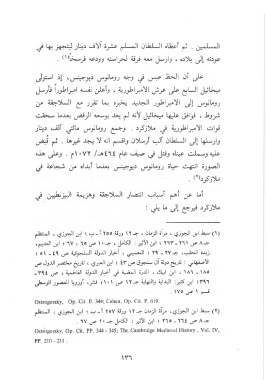 المسلمين . ثم أعطاه السلطان المسلم عشرة آلاف دينار ليتجهز بها في
عودته إلى بلاده ، وأرسل معه فرقة لحراسته وودعه فرسخاً(١) .
على أن الحظ عبس في وجه رومانوس ديوجينس، إذ استولى
ميخائيل السابع على عرش الامبراطورية ، وأعلن نفسه امبراطوراً فأرسل
رومانوس إلى الامبراطور الجديد يخبره بما تقرر مع السلاجقة من
شروط ، فوافق عليها ميخائيل لأنه لم يعد بوسعه الرفض بعدما سحقت
قوات الامبراطورية في ملازكرد . وجمع رومانوس مائتي ألف دينار
وأرسلها إلى السلطان ألب أرسلان وأقسم انه لا يجد غيرها . ثم قُبض
عليه وسملت عيناه وقتل في صيف عام ٤٦٤هـ/ ١٠٧٢م . وعلى هذه
الصورة انتهت حياة رومانوس ديوجينس بعدما أبداه من شجاعة في
ملازكرد(٢) .
أما عن أهم أسباب انتصار السلاجقة وهزيمة البيزنطيين في
ملازكرد فيرجع إلى ما يلي :
(١) سبط ابن الجوزي ، مرآة الزمان، جـ ١٢ ورقة ٢٥٧ أ ـ ب ؛ ابن الجوزي ، المنتظم
جـ ٨ ص ٢٦١ ـ ٢٦٣ ؛ ابن الأثير : الكامل ، جـ ١٠ ص ٦٥ ـ ٦٧ ؛ ابن العديم،
زبدة الحلب، جـ ٢ ٢٧ ـ ٢٩ ؛ الحسيني ، أخبار الدولة السلجوقية ص ٤٩ ـ ٥١ ؛
الأصفهاني : تاريخ دولة آل سلجوق ص ٤٣ ؛ ابن العبري ، تاريخ مختصر الدول ص
١٨٥ ـ ١٨٦ ، ابن ايبك، الدرة المضية في أخبار الدولة الفاطمية ، ص ٣٩٤ ـ
٣٩٦؛ ابن كثير: البداية والنهاية جـ ١٢ ص ١٠١؛ فشر، أوروبا العصور الوسطى
قسم ١ ص ١٧٥.
Ostrogorsky, Op. Cit. P. 344; Cahen, Op. Cit. P. 639.
(٢) سبط ابن الجوزي ، مرآة الزمان، جـ ١٢ ورقة ٢٥٧ أ ـ ب ؛ ابن الجوزي ، المنتظم
جـ ٨ ص ٢٦٤ ـ ٢٦٥ ؛ ابن الأثير : الكامل جـ ١٠ ص ٦٧ .
Ostrogorsky, Op. Cit. PP. 344 - 345; The Cambridge Medieval History , Vol. IV,
PP. 210 - 211 .
١٣٦